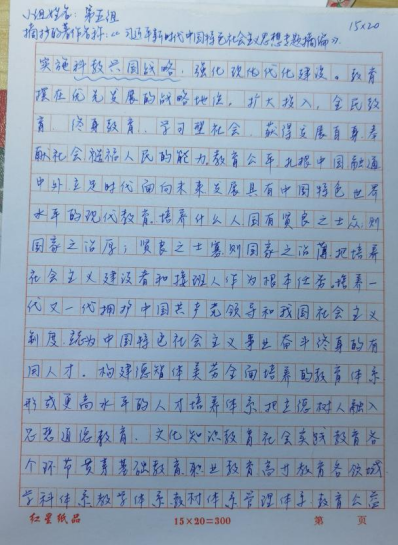 小组姓名：第五组
15×20
摘抄的著作名称：《习近平新时代中国特色社会主义思想专题摘编》.
实施科教兴国战略，强化现代化建设。教育
摆在优先发展的战略地位。扩大投入，全民教
育，终身教育，学习型社会，获得发展自身奉
献社会造福人民的能力.教育公平.扎根中国融通
中外立足时代面向未来发展具有中国特色世界
水平的现代教育.培养什么人国有贤良之士众，则
国家之治厚；贤良之士寡，则国家之治薄.把培养
社会主义建设者和接班人作为根本任务。培养一
代又一代拥护中国共产党领导和我国社会主义
制度.立志为中国特色社会主义事业奋斗终身的有
用人才。构建德智体美劳全面培养的教育体系
形成更高水平的人才培养体系.把立德树人融入
思想道德教育、文化知识教育社会实践教育各
个环节贯穿基础教育.职业教育高等教育各领域
学科体系教学体系教材体系管理体系教育公益
红星纸品
15×20=300
第 页